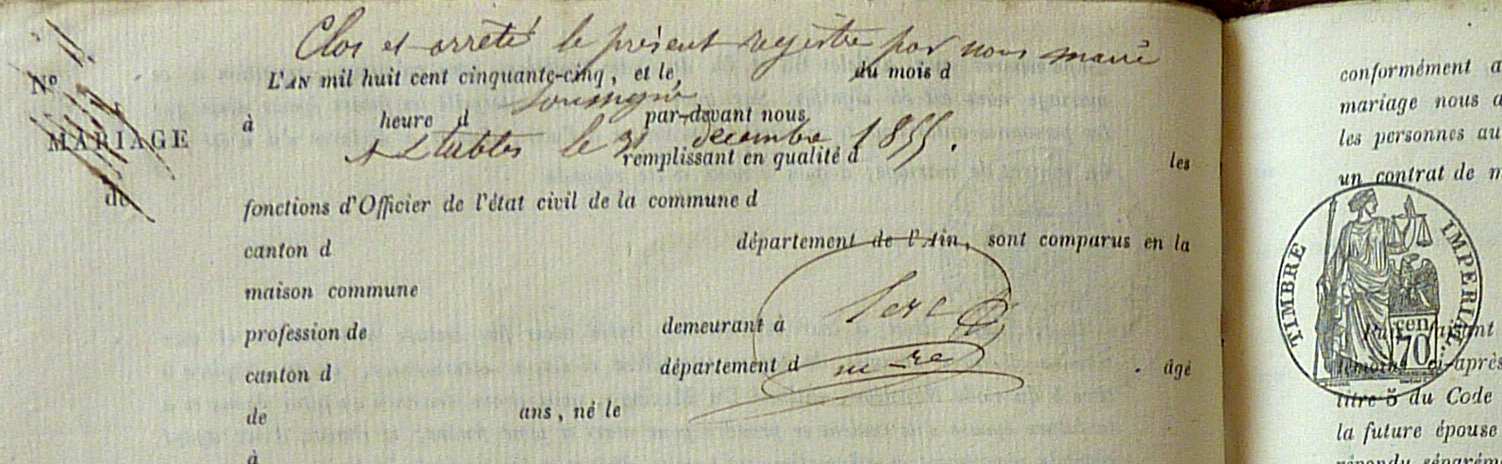 Clos et arreté le présent registre par nous maire
N° L'AN mil huit cent cinquante-cinq, et le, du mois d
soussigné
à heure d par-devant nous
MARIAGE
A Etables le 31 decembre 1855.
remplissant en qualité d les
de
fonctions d'Officier de l'état civil de la commune d
canton d département de l'Ain, sont comparus en la
maison commune
profession de demeurant à
canton d département d âgé
m re
de ans, né le
à
conformément a
mariage nous a
les personnes au
un contrat de m
TIMBRE IMPERIAL
cen 70
faisant
témoins ci-après
titre 5 du Code
la future épouse
répondu séparéme